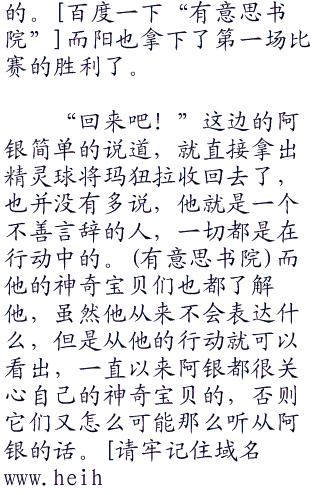 的。[百度一下“有意思书
院”]而阳也拿下了第一场比
赛的胜利了。
“回来吧！”这边的阿
银简单的说道，就直接拿出
精灵球将玛狃拉收回去了，
也并没有多说，他就是一个
不善言辞的人，一切都是在
行动中的。(有意思书院)而
他的神奇宝贝们也都了解
他，虽然他从来不会表达什
么，但是从他的行动就可以
看出，一直以来阿银都很关
心自己的神奇宝贝的，否则
它们又怎么可能那么听从阿
银的话。[请牢记住域名
www.heih